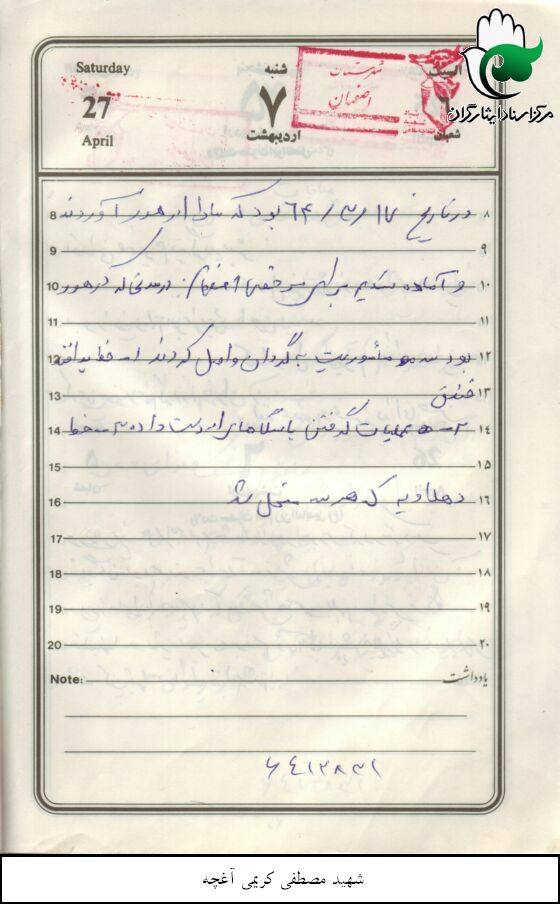 Saturday
27
April
شنبه
۷
اردیبهشت
شهرستان
اصفهان
مرکز اسناد ایثارگران
در تاریخ ۶۴/۳/۱۷ بود که ما را از هور آوردند
و آماده شدیم برای مرخصی اصفهان. در مدتی که در هور
بود سه مأموریت به گردان واصل کردند ۱- خط پدافندی
خندق
۲- عملیات گرفتن پاسگاههای از دست داده ۳- خط
دهلاویه که هر سه منحل شد
8 ۸
9 ۹
10 ۱۰
11 ۱۱
12 ۱۲
13 ۱۳
14 ۱۴
15 ۱۵
16 ۱۶
17 ۱۷
18 ۱۸
19 ۱۹
20 ۲۰
Note: یادداشت
۶۴۱۲۸۳۱
شهید مصطفی کریمی آغچه